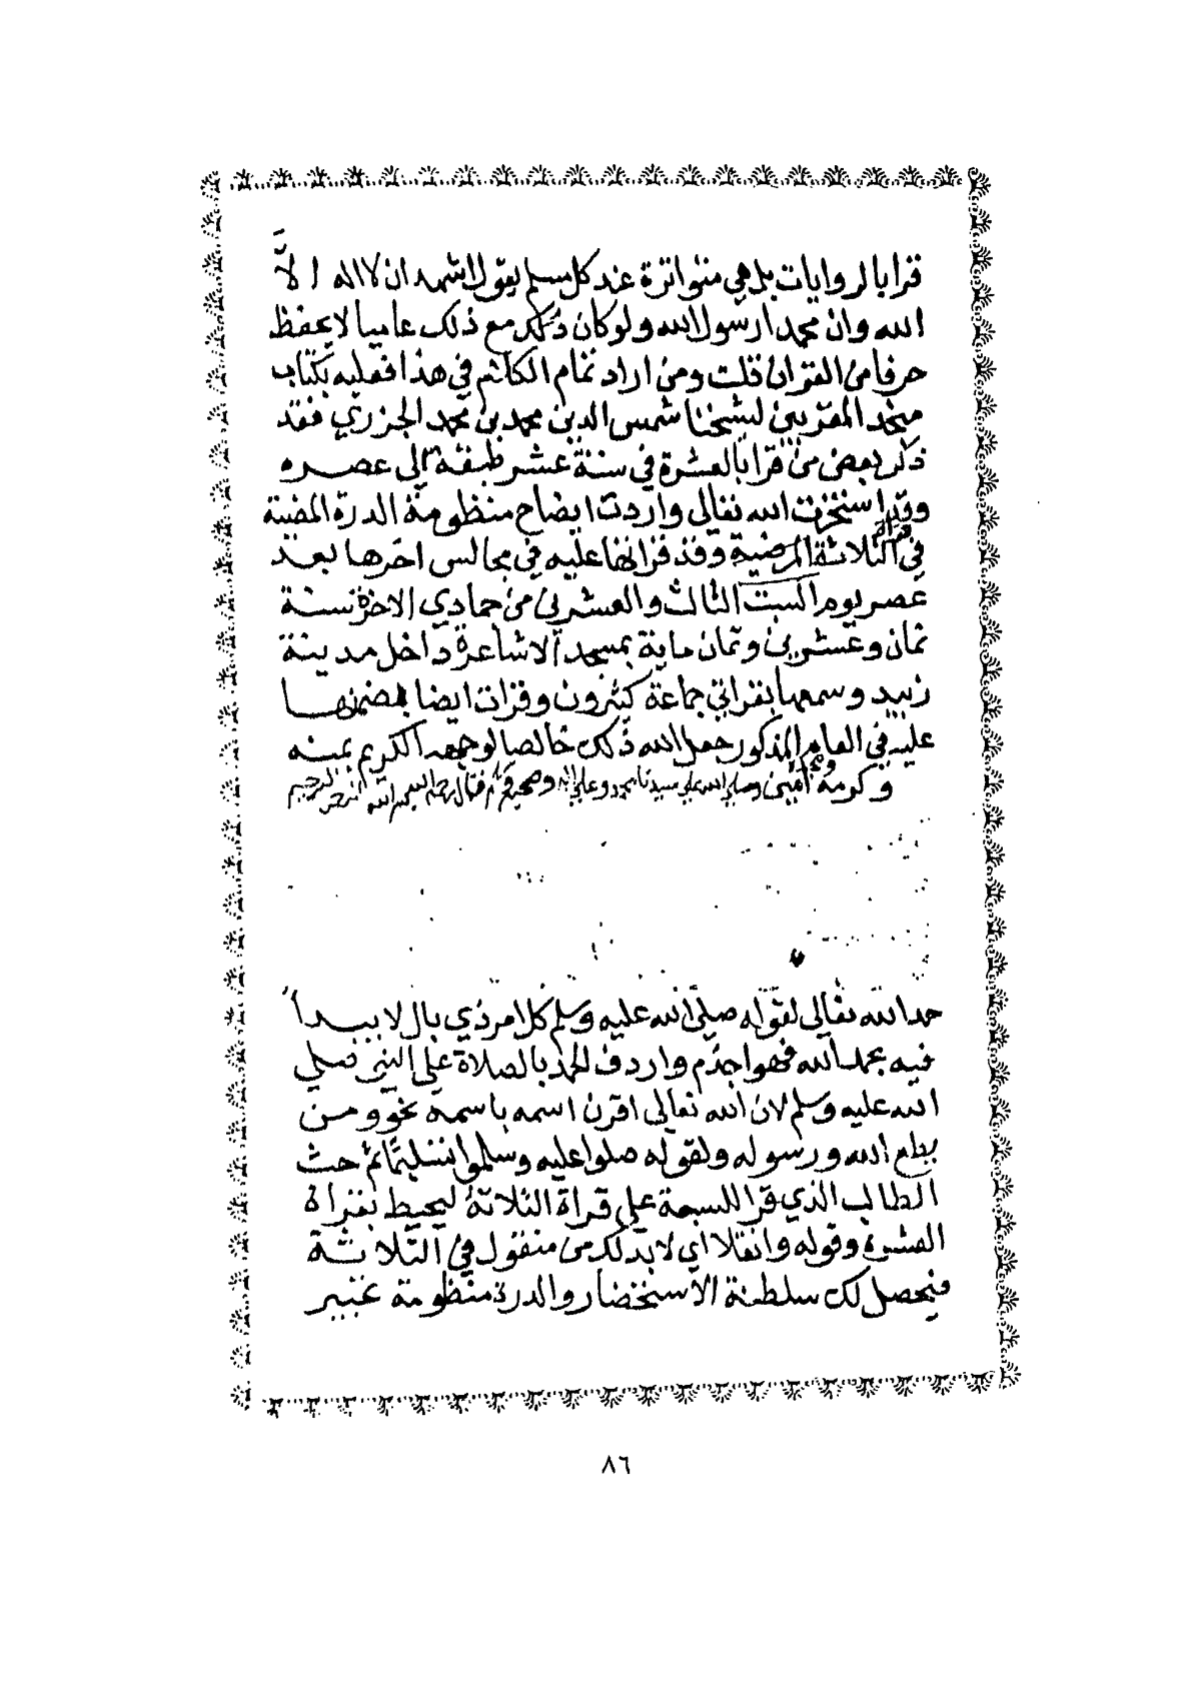 قرا بالروايات بل هي متواترة عند كل مسلم يقول اشهد ان لا اله الا
الله وان محمدا رسول الله ولو كان ذلك مع ذلك عاميا لا يحفظ
حرفا من القران قلت ومن اراد تمام الكلام في هذا فعليه بكتاب
منجد المقربين لشيخنا شمس الدين محمد بن محمد الجزري فقد
ذكر بعض من قرا بالعشرة في ستة عشر طبقة الى عصره
وقد استخرت الله تعالى واردت ايضاح منظومة الدرة المضية
في قراة الثلاثة المرضية وقد قراتها عليه في مجالس اخرها بعد
عصر يوم السبت الثالث والعشرين من جمادي الاخرة سنة
ثمان وعشرين وثمان ماية بمسجد الاشاعرة داخل مدينة
زبيد وسمعها بقراتي جماعة كثيرون وقرات ايضا بمضمنها
عليه في العام المذكور جعل الله ذلك خالصا لوجهه الكريم بمنه
وكرمه امين وصلى الله على سيدنا محمد وعلى اله وصحبه وسلم قال رحمه الله بسم الله الرحمن الرحيم
حمد الله تعالى لقوله صلى الله عليه وسلم كل امر ذي بال لا يبدا
فيه بحمد الله فهو اجذم واردف الحمد بالصلاة على النبي صلي
الله عليه وسلم لان الله تعالى اقرن اسمه باسمه نحو ومن
يطع الله ورسوله ولقوله صلوا عليه وسلموا تسليما ثم حث
الطالب الذي قرا للسبعة على قراة الثلاثة ليحيط بقراة
العشرة وقوله وانقلا اي لا بد لك من منقول في الثلاثة
فيحصل لك سلطنة الاستحضار والدرة منظومة غير
٨٦